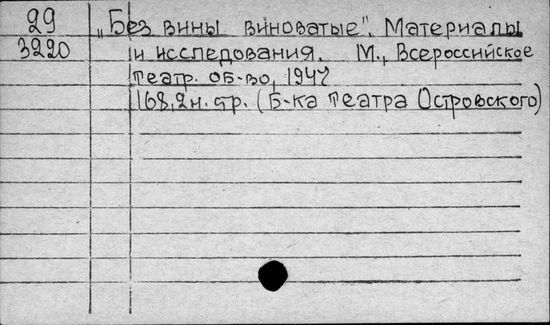 29 „Без вины виноватые". Материалы
3220 и исследования. М., Всероссийское
театр. об-во, 1947
168,2н. стр. (Б-ка театра Островского)